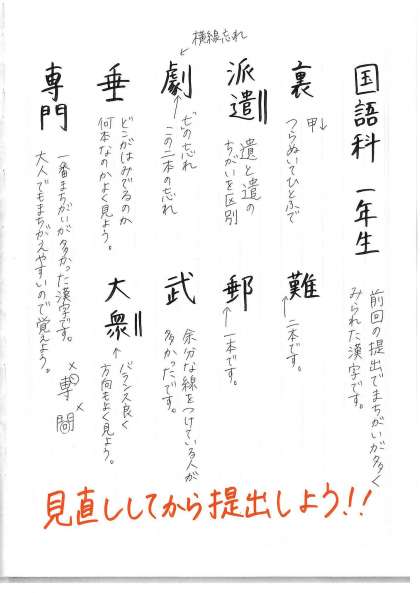 国語科 一年生
前回の提出でまちがいが多く
みられた漢字です。
裏
甲↓
つらぬいてひとふで
難
二本です。
派遣
遺と遣の
ちがいを区別
郵
一本です。
横線忘れ
劇
"七"の忘れ
この二本の忘れ
武
余分な線をつけている人が
多かったです。
垂
どこがはみでるのか
何本なのかよく見よう。
大衆
バランス良く
方向もよく見よう。
専門
一番まちがいが多かった漢字です。
大人でもまちがえやすいので覚えよう。
見直ししてから提出しよう!!